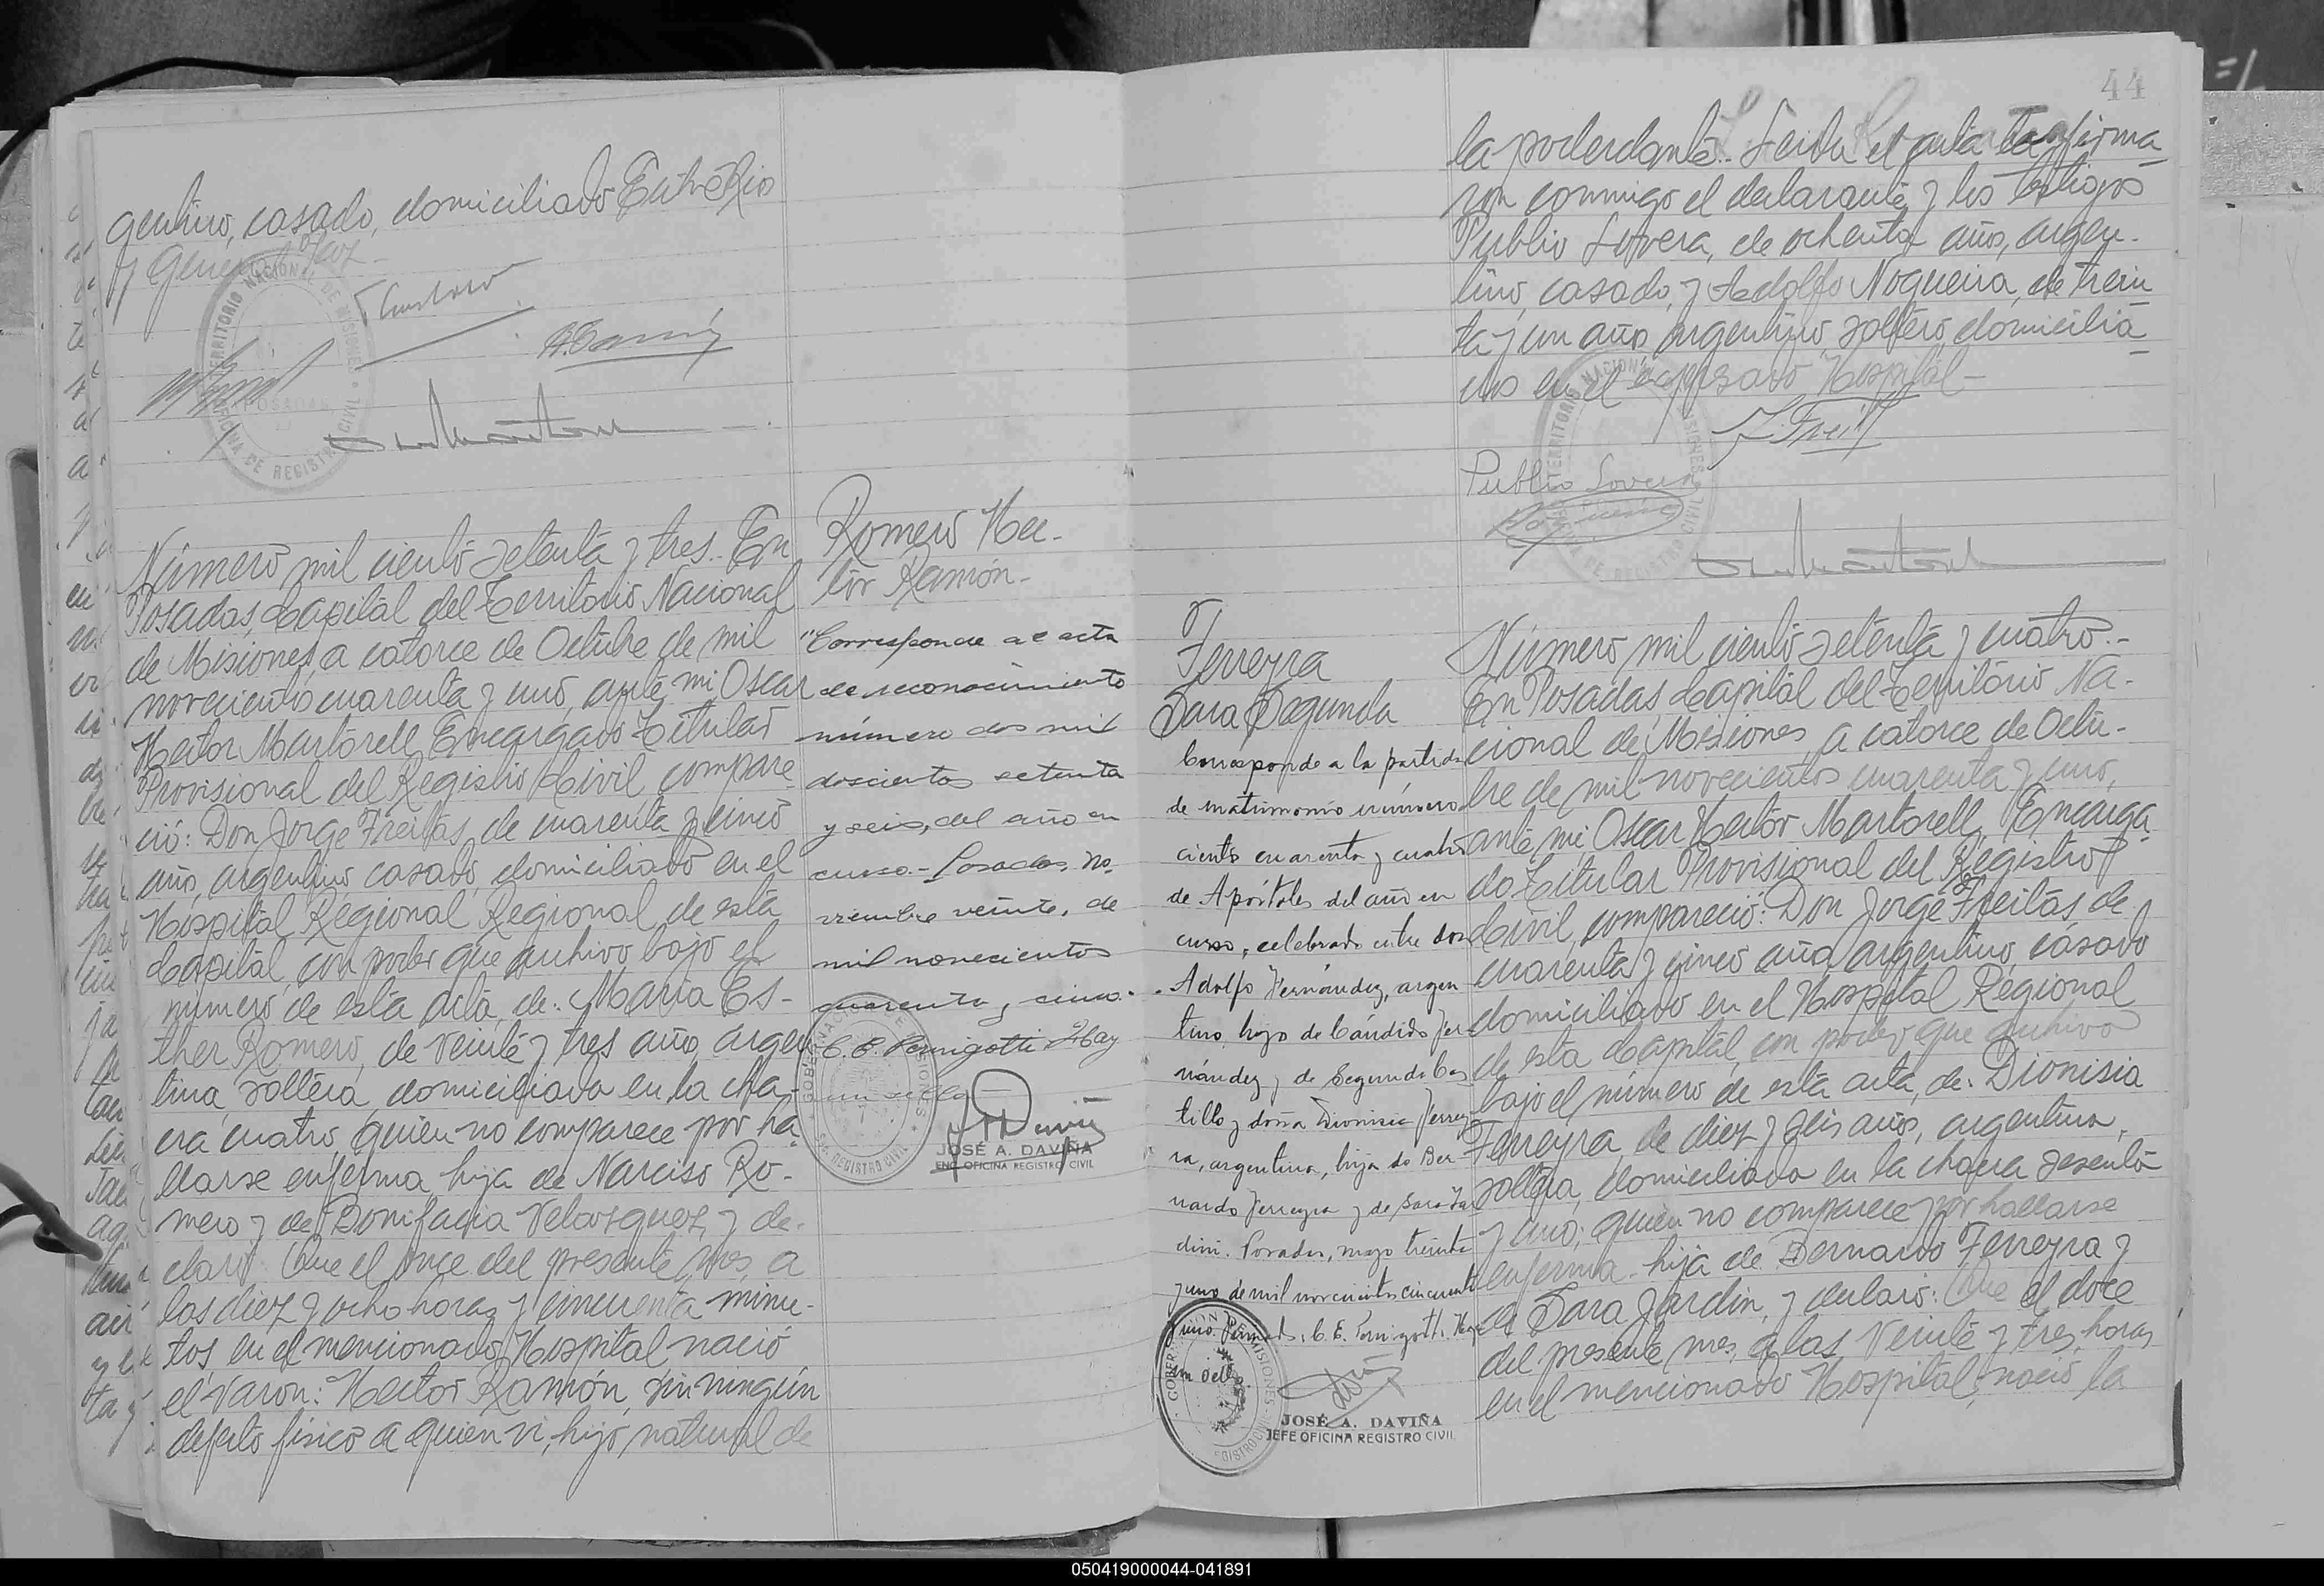 gentino, casado, domiciliado Entre Rios
y General Paz.-
TERRITORIO NACIONAL DE MISIONES
POSADAS
OFICINA DE REGISTRO CIVIL
Número mil ciento setenta y tres.. En
Posadas, Capital del Territorio Nacional
de Misiones, a catorce de Octubre de mil
novecientos cuarenta y uno, ante mi, Oscar
Hector Martorell, Encargado Titular
Provisional del Registro Civil, compare
ció: Don Jorge Freitas, de cuarenta y cinco
año, argentino casado, domiciliado en el
Hospital Regional Regional de esta
Capital, con poder que archivo bajo el
numero de esta acta, de: Maria Es-
ther Romero, de veinte y tres año, argen
tina, soltera, domiciliada en la cha-
cra cuatro, quien no comparece por ha-
llarse enferma, hija de Narciso Ro-
mero y de Bonifacia Velazquez, y de-
claró: Que el once del presente mes, a
las diez y ocho horas y cincuenta minu-
tos, en el mencionado Hospital nació
el varon: Hector Ramón, sin ningún
defecto fisico a quien vi, hijo natural de
Romero Hec-
tor Ramón-
"Corresponde al acta
de reconocimiento
número dos mil
doscientos setenta
y seis, del año en
curso.- Posadas, no
viembre veinte, de
mil novecientos
cuarenta y cinco.-
C. E. Pernigotti Hay
un sello
GOBERNACION DE MISIONES
REGISTRO CIVIL
JOSÉ A. DAVIÑA
ENC. OFICINA REGISTRO CIVIL
44
la poderdante.. Leida el acta la firma
ron conmigo el declarante y los testigos
Publio Lovera, de ochenta años, argen-
tino, casado, y Adolfo Nogueira, de trein
ta y un año, argentino soltero, domicilia
dos en el expresado Hospital-
J. Freit
Publio Lovera
TERRITORIO NACIONAL DE MISIONES
OFICINA DE REGISTRO CIVIL
Ferreyra
Sara Segunda
Corresponde a la partida
de matrimonio número
ciento cuarenta y cuatro
de Apóstoles del año en
curso, celebrado entre don
Adolfo Fernández, argen
tino, hijo de Cándido Fer-
nández y de Segunda Cas
tillo y doña Dionisia Ferrey
ra, argentina, hija de Ber
nardo Ferreyra y de Sara Jar
dini. Posadas, mayo treinta
y uno de mil novecientos cincuenta
y uno. Firmado: C. E. Pernigotti. Hay
un sello.
GOBERNACION DE MISIONES
REGISTRO CIVIL
JOSÉ A. DAVIÑA
JEFE OFICINA REGISTRO CIVIL
Número mil ciento setenta y cuatro.-
En Posadas, Capital del Territorio Na-
cional de Misiones, a catorce de Octu-
bre de mil novecientos cuarenta y uno,
ante mi, Oscar Hector Martorell, Encarga
do Titular Provisional del Registro
Civil, compareció: Don Jorge Freitas de
cuarenta y cinco año, argentino, casado
domiciliado en el Hospital Regional
de esta Capital, con poder que archivo
bajo el número de esta acta, de: Dionisia
Ferreyra, de diez y seis años, argentina,
soltera, domiciliada en la chacra sesenta
y uno; quien no comparece por hallarse
enferma, hija de Bernardo Ferreyra y
de Sara Jardin, y declaró: Que el doce
del presente mes, a las veinte y tres horas,
en el mencionado Hospital, nació la
050419000044-041891